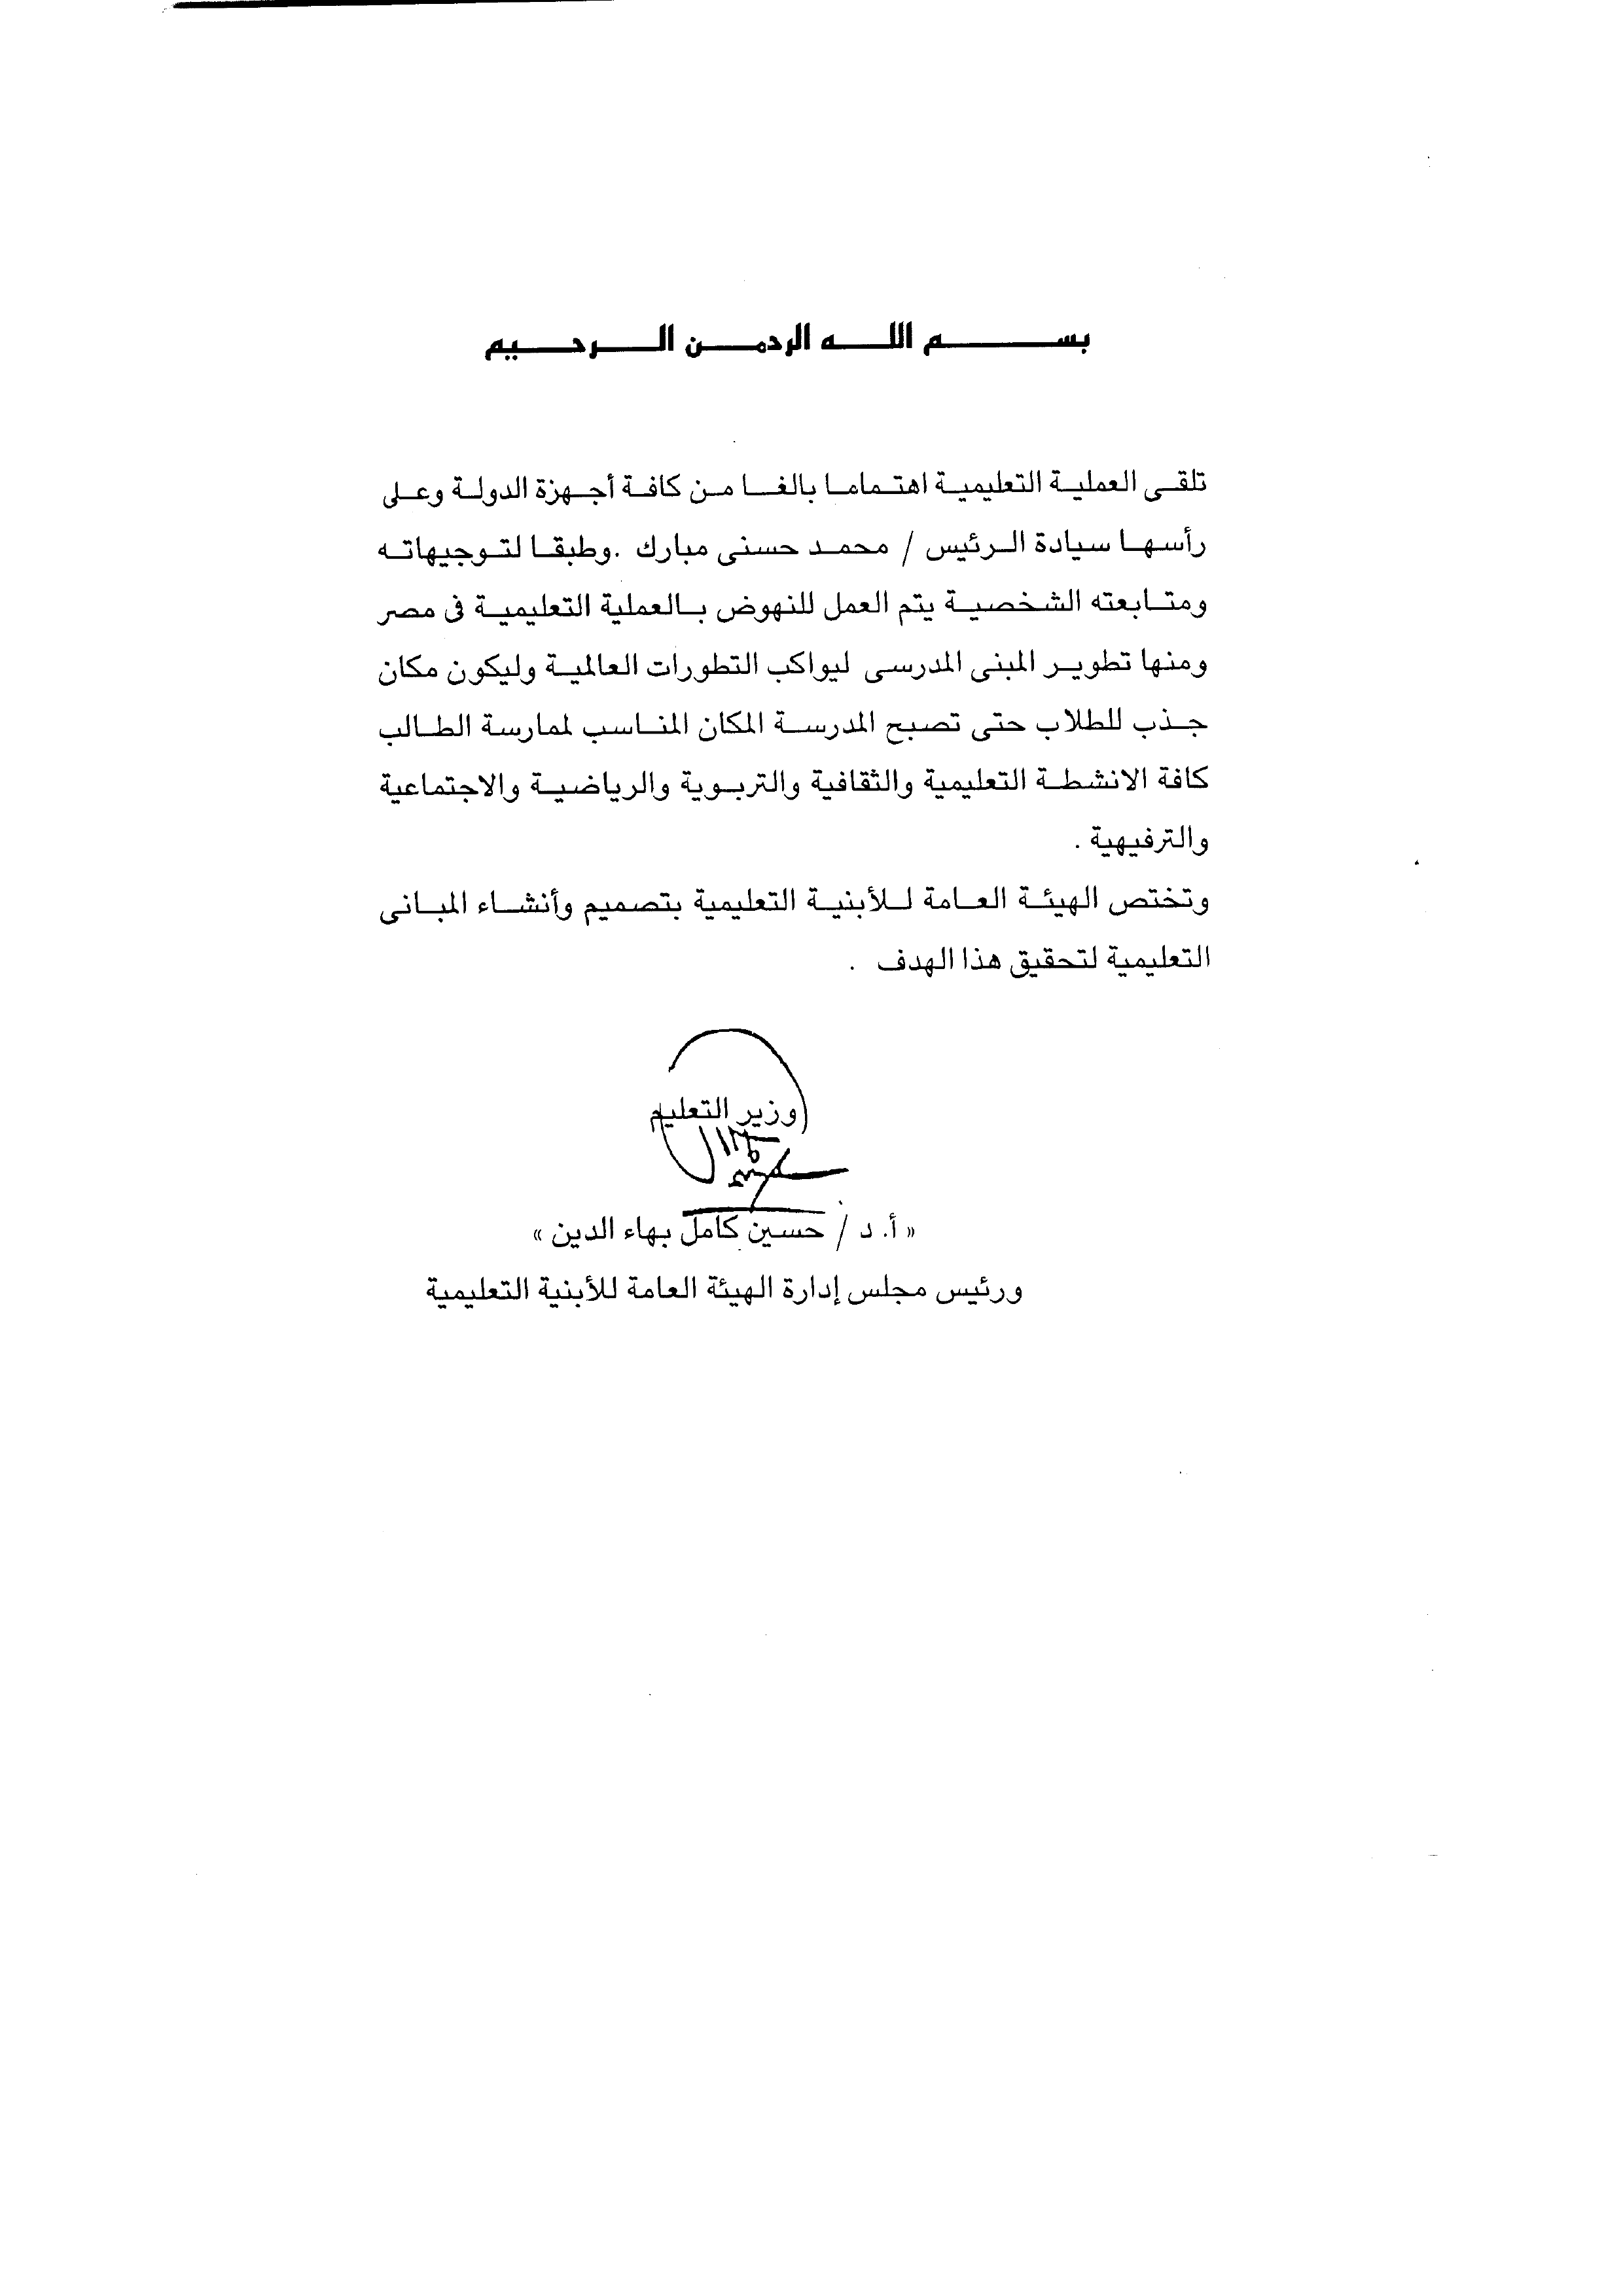 بسم الله الرحمن الرحيم
تلقى العملية التعليمية اهتماما بالغا من كافة أجهزة الدولة وعلى
رأسها سيادة الرئيس / محمد حسنى مبارك .وطبقا لتوجيهاته
ومتابعته الشخصية يتم العمل للنهوض بالعملية التعليمية فى مصر
ومنها تطوير المبنى المدرسى ليواكب التطورات العالمية وليكون مكان
جذب للطلاب حتى تصبح المدرسة المكان المناسب لممارسة الطالب
كافة الانشطة التعليمية والثقافية والتربوية والرياضية والاجتماعية
والترفيهية .
وتختص الهيئة العامة للأبنية التعليمية بتصميم وأنشاء المبانى
التعليمية لتحقيق هذا الهدف .
وزير التعليم
« أ. د / حسين كامل بهاء الدين »
ورئيس مجلس إدارة الهيئة العامة للأبنية التعليمية